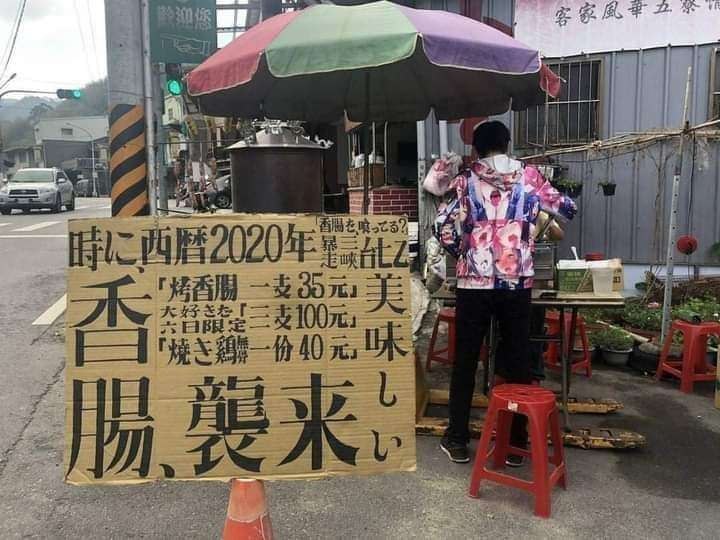 歡迎您
客家風華五寮
時に、西暦2020年
「香腸を喰ってる?
暴走
三峡
香腸、襲来
「烤香腸 一支35元」
大好きた
六日限定
「三支100元」
「焼き鶏 一份40元」
美味しい